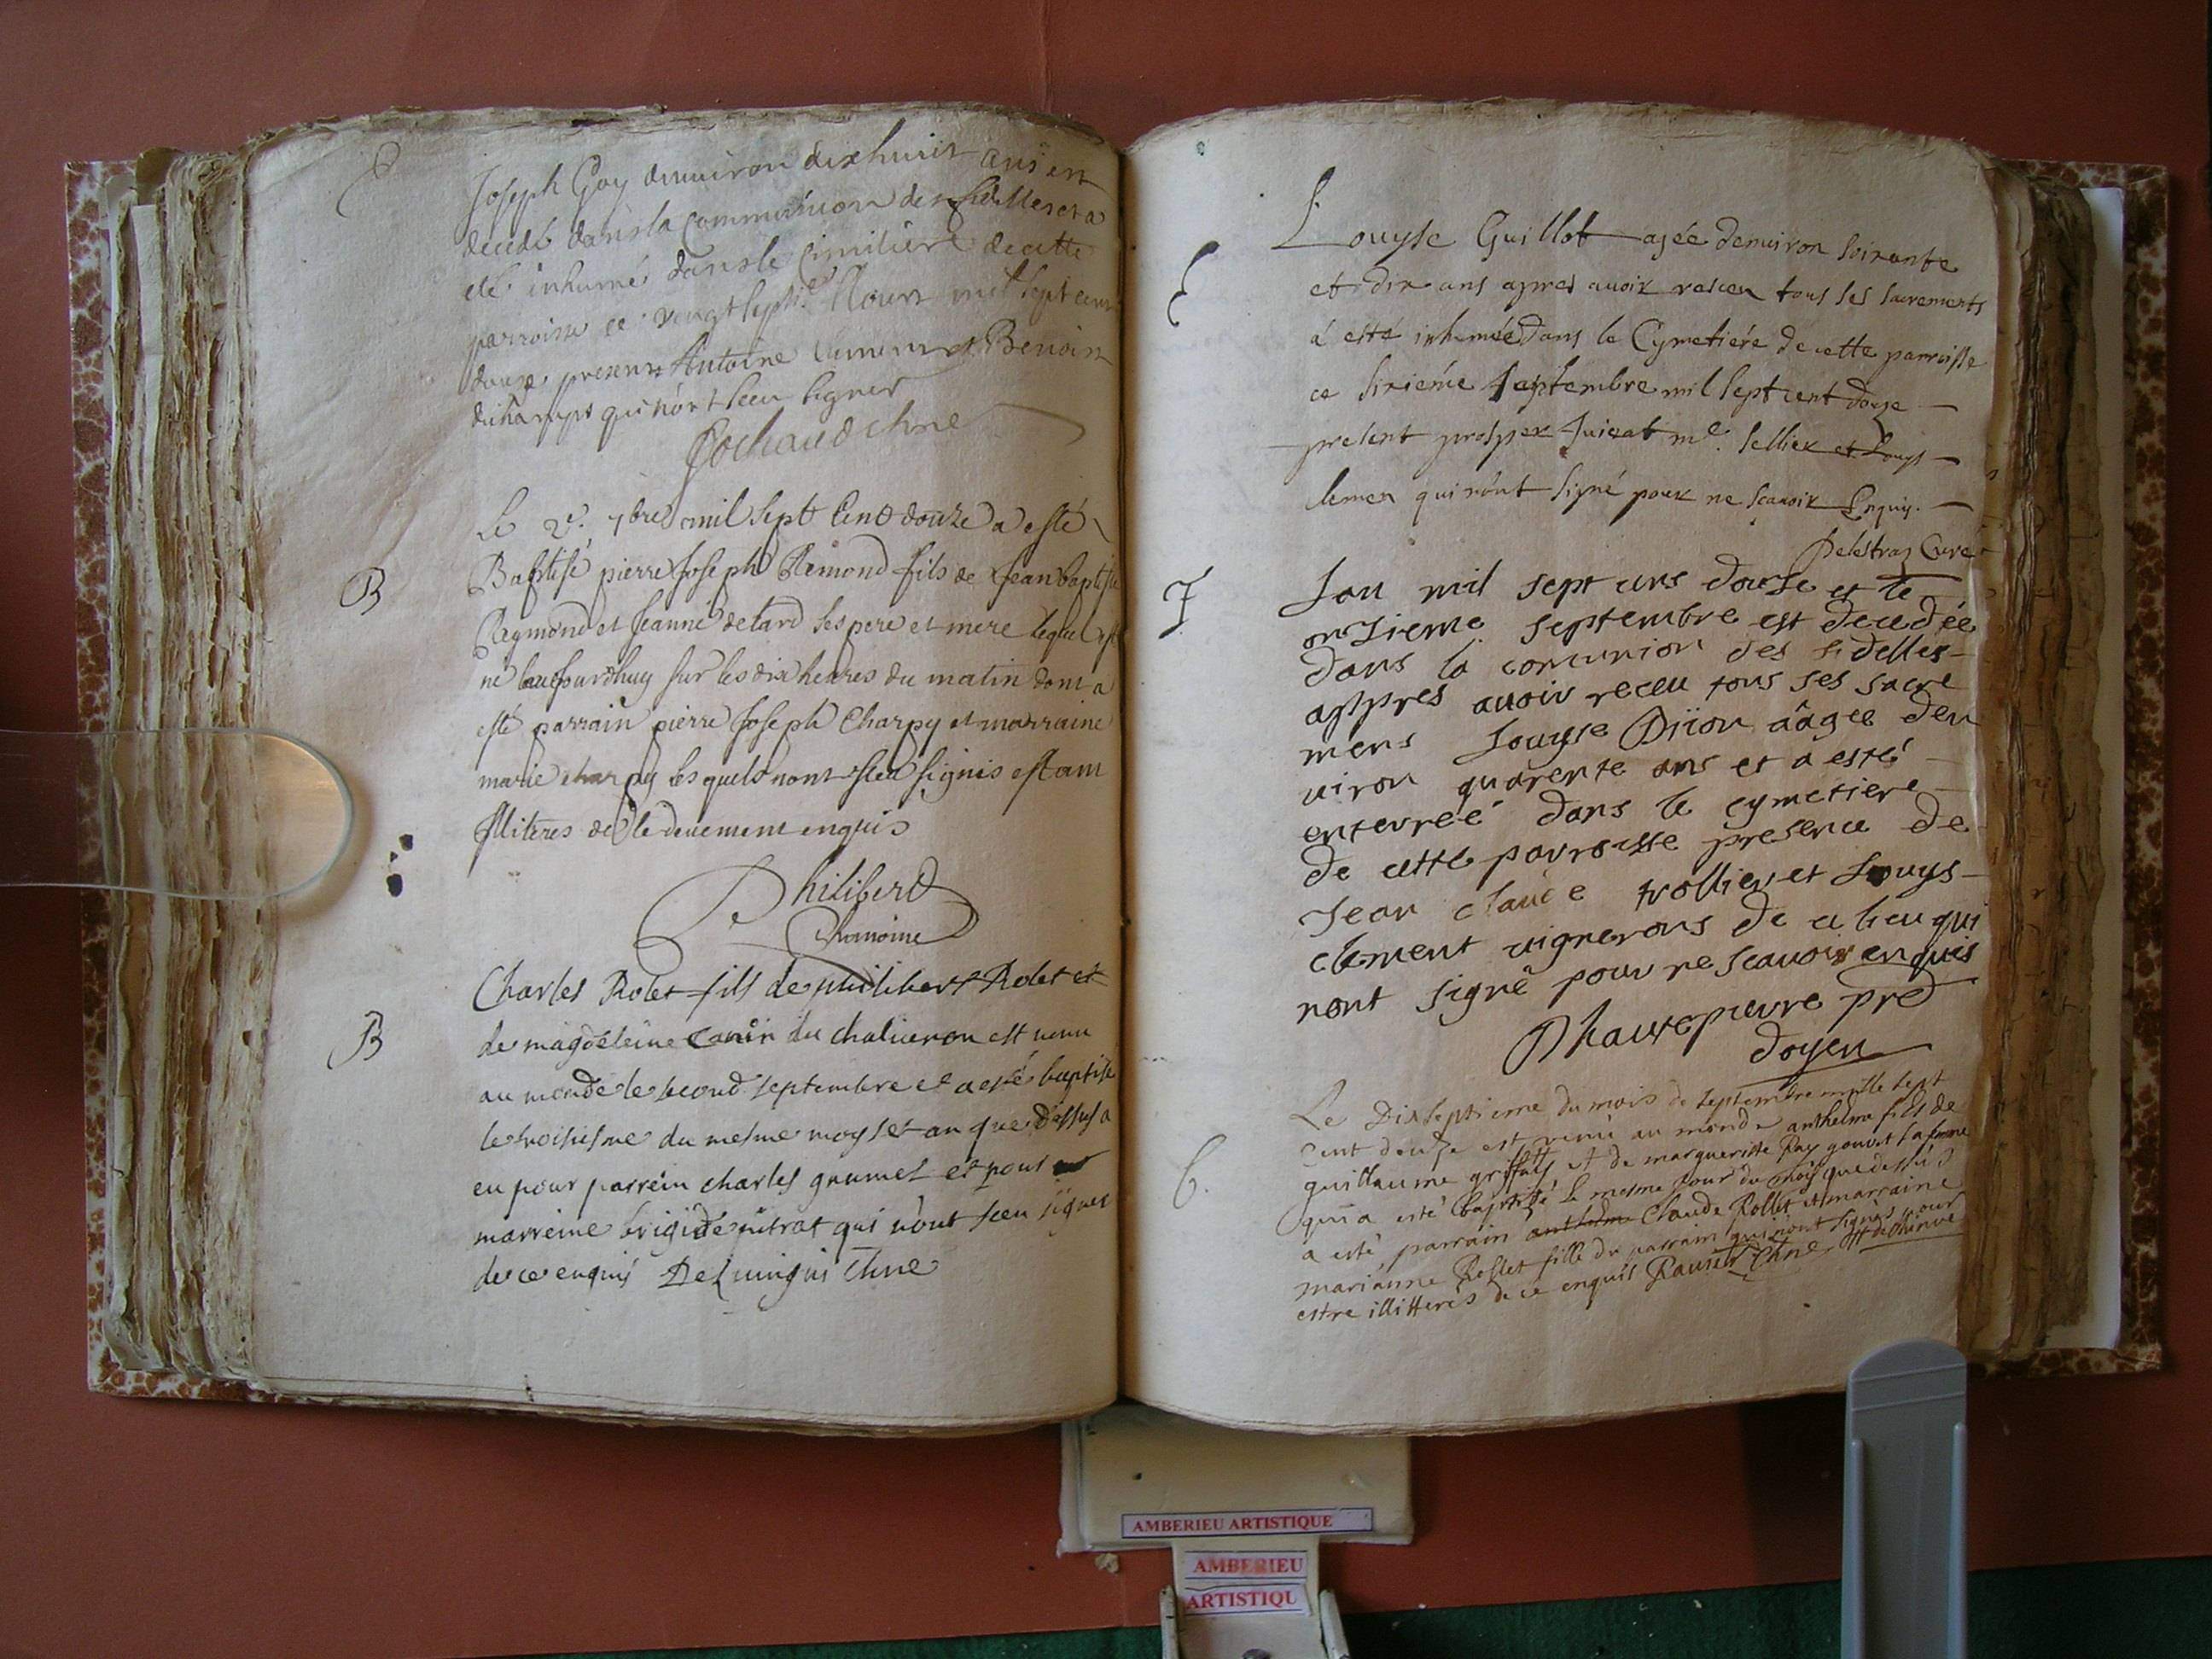 Joseph Goy denuiron dixhuit ans est
decedé dans la communion des fidelles et a
eté inhumé dans le cimitiere de cette
parroisse ce vengt sept.e Aoust mil sept cent
douze presens Antoine et Benoist
duchamps qui n'ont sceu signer
Cochaud chne
B
Le 2e. 7bre mil sept Cent douze a esté
Baptisé pierre Joseph Remond fils de Jean baptiste
Raymond et Jeanne detard ses pere et mere lequel est
né aujourdhuy sur les dix heures du matin dont a
esté parrain pierre Joseph Charpy et marraine
marie charpy lesquels nont sceu signés estant
Illiteres de le deuement enquis
Philiberd
Chanoine
B
Charles Rolet fils de philibert Rolet et
de magdeleine Canin du chalieron est venu
au monde le second septembre et a esté baptise
le troisiesme du mesme moys et an que dessus a
eu pour parrein charles grumet et pour
marreine brigide nitrat qui n'ont sceu signer
de ce enquis Deluinguis Chne
E
Louyse Guillot agée denuiron soixante
et dix ans apres auoir resceu tous ses sacrements
a esté inhumée dans le Cymetiere de cette parroisse
ce sixiéme septembre mil sept cent douze
present prosper Juirat me. sellier et Louys
clemen qui n'ont signé pour ne scauoir Enquis.
Delestraz Curé
J
Lan mil sept cens douse et le
onzieme septembre est decedée
dans la comunion des fidelles
appres auoir receu tous ses sacre
mens Louyse Diion aâgee den
uiron quarente ans et a esté
enterreé dans le cymetiere
de cette parroisse presence de
Jean claude trollier et Louys
clement uignerons de ce lieu qui
nont signé pour ne scauoir enquis
Dhautepierre pre
doyen
b.
Le Dixseptieme du mois de septembre mille sept
cent douze est venu au monde anthelme fils de
guillaume griffatt et de margueritte Ray gouuet sa femme
qui a esté baptizé le mesme jour du mois que dessus
a esté parrain anthelme Claude Rollet et marraine
marianne Rollet fille du parrain qui n'ont signés pour
estre illitterés de ce enquis Rauset Chne
AMBERIEU ARTISTIQUE
AMBERIEU
ARTISTIQU